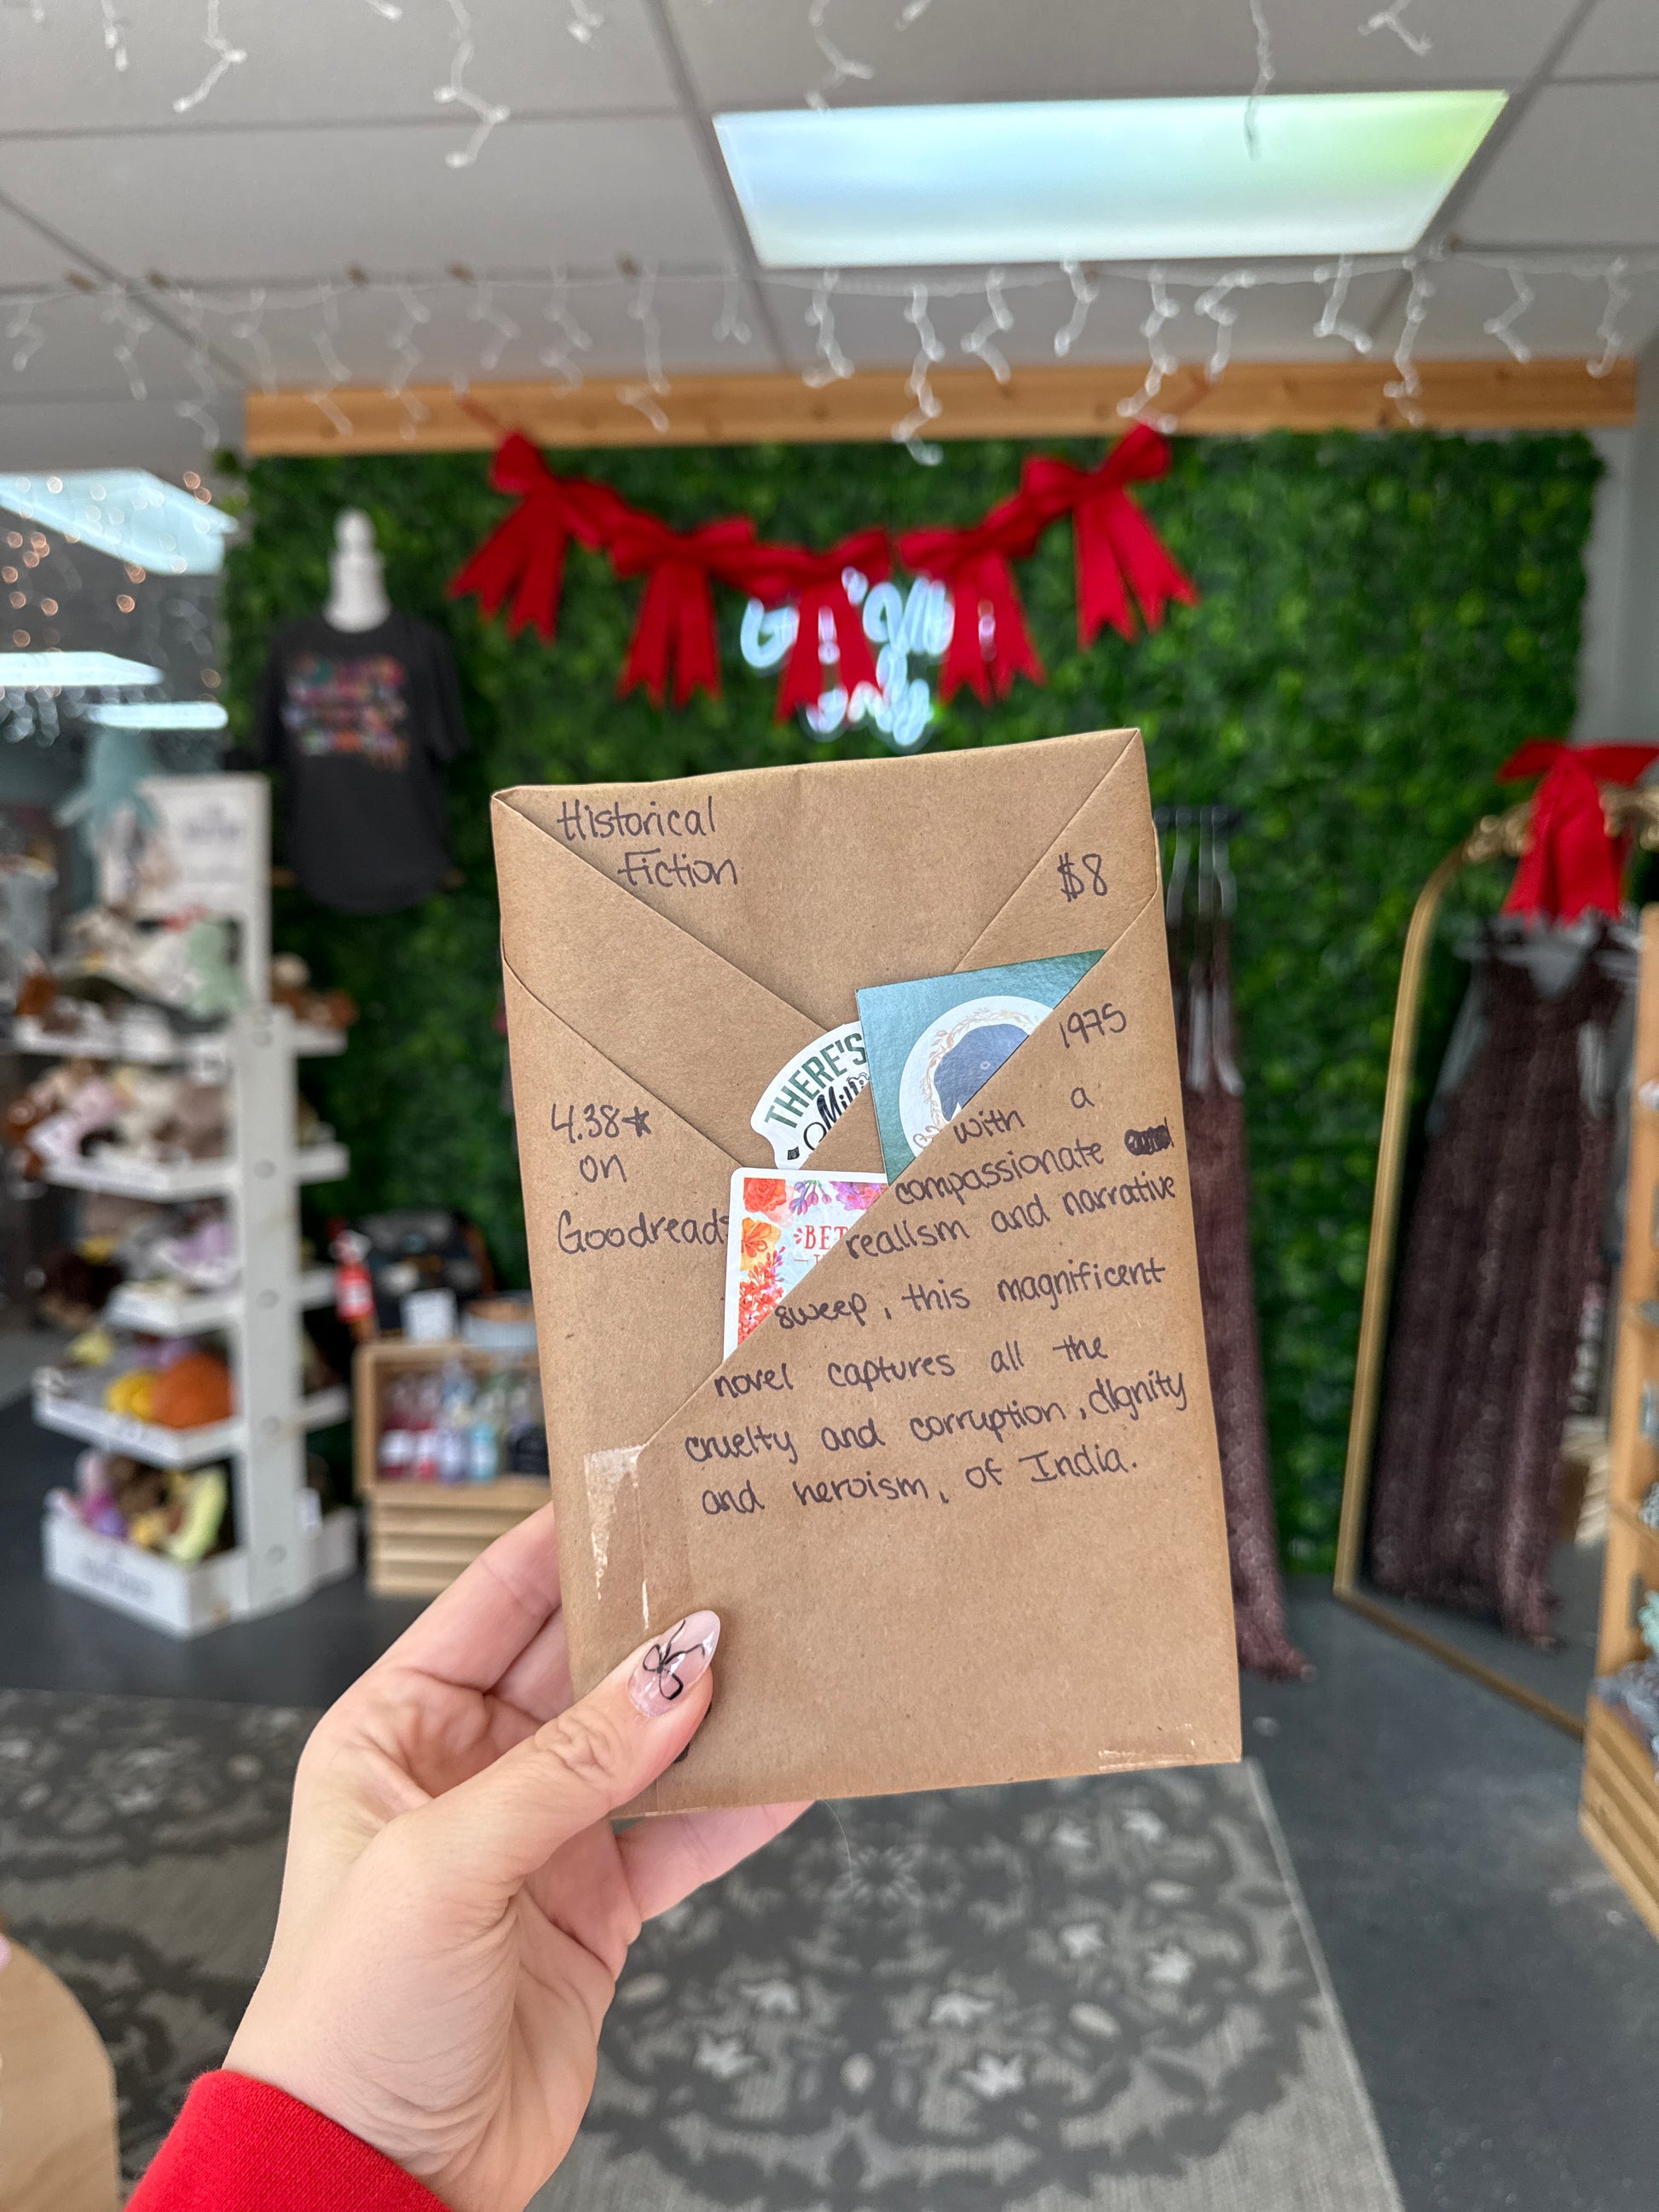 Historical
Fiction
$8
1975
THERE'S
4.38★
on
Goodreads
with a
compassionate
realism and narrative
sweep, this magnificent
novel captures all the
cruelty and corruption, dignity
and heroism, of India.
BET